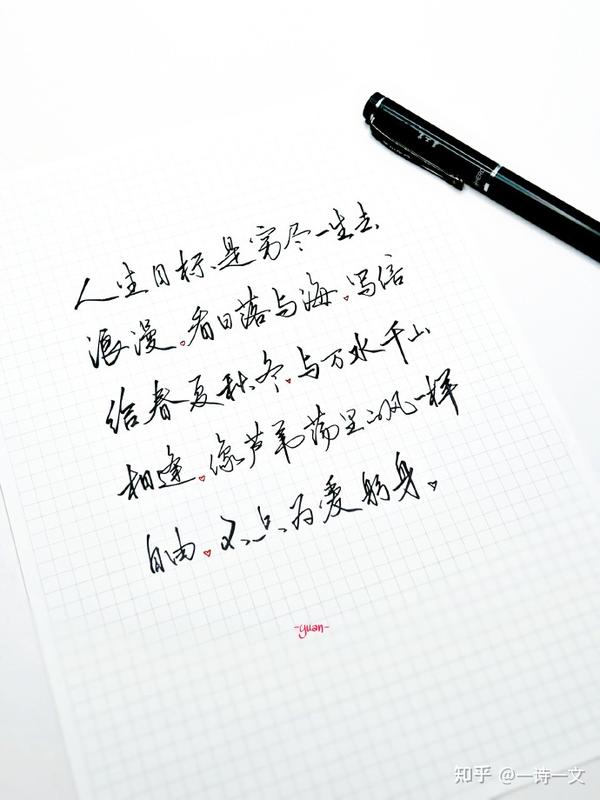 人生目标是穷尽一生去
浪漫♡看日落与海♡写信
给春夏秋冬♡与万水千山
相逢♡像芦苇荡里的风一样
自由♡为爱躬身♡
-yuan-
HERO
知乎 @一诗一文